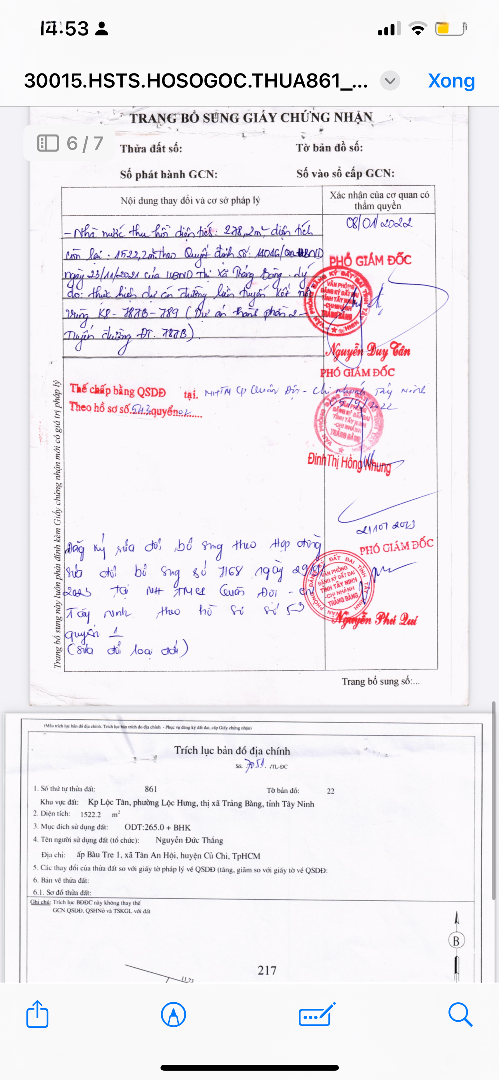 14:53
30015.HSTS.HOSOGOC.THUA861_...
Xong
6/7
TRANG BỔ SUNG GIẤY CHỨNG NHẬN
Thửa đất số: Tờ bản đồ số:
Số phát hành GCN: Số vào sổ cấp GCN:
Nội dung thay đổi và cơ sở pháp lý
Xác nhận của cơ quan có thẩm quyền
- Nhà nước thu hồi diện tích: 278,2m² diện tích
còn lại: 1522,2m² theo Quyết định số
ngày 23/11/2021 của UBND Thị xã Trảng Bàng. Lý
do: thực hiện dự án đường liên tuyến kết nối
vùng KP-787B-789 (Dự án thành phần 2-
Tuyến đường ĐT. 787B).
08/01/2022
PHÓ GIÁM ĐỐC
Nguyễn Duy Tân
Thế chấp bằng QSDĐ tại. NHTM CP Quân Đội - Chi nhánh Tây Ninh
Theo hồ sơ số quyển
PHÓ GIÁM ĐỐC
Đinh Thị Hồng Nhung
Đăng ký sửa đổi bổ sung theo Hợp đồng
sửa đổi bổ sung số 7168 ngày
2023 Tại NH TMCP Quân Đội - CN
Tây Ninh theo hồ sơ số 53
quyển 1
(Sửa đổi loại đất)
PHÓ GIÁM ĐỐC
VĂN PHÒNG
ĐĂNG KÝ ĐẤT ĐAI
TỈNH TÂY NINH
CHI NHÁNH
TRẢNG BÀNG
Trang bổ sung này luôn phải đính kèm Giấy chứng nhận mới có giá trị pháp lý
Trang bổ sung số:...
(Mẫu trích lục bản đồ địa chính. Trích lục bản đồ địa chính - Phục vụ đăng ký đất đai, cấp Giấy chứng nhận)
Trích lục bản đồ địa chính
Số. 7051 /TL-ĐC
1. Số thứ tự thửa đất: 861 Tờ bản đồ: 22
Khu vực đất: Kp Lộc Tân, phường Lộc Hưng, thị xã Trảng Bàng, tỉnh Tây Ninh
2. Diện tích: 1522.2 m²
3. Mục đích sử dụng đất: ODT:265.0 + BHK
4. Tên người sử dụng đất (tổ chức): Nguyễn Đức Thắng
Địa chỉ: ấp Bàu Tre 1, xã Tân An Hội, huyện Củ Chi, TpHCM
5. Các thay đổi của thửa đất so với giấy tờ pháp lý về QSDĐ (tăng, giảm so với giấy tờ về QSDĐ:
6. Bản vẽ thửa đất:
6.1. Sơ đồ thửa đất:
Ghi chú: Trích lục BĐĐC này không thay thế
GCN QSDĐ, QSHNỞ và TSKGL với đất
B
217